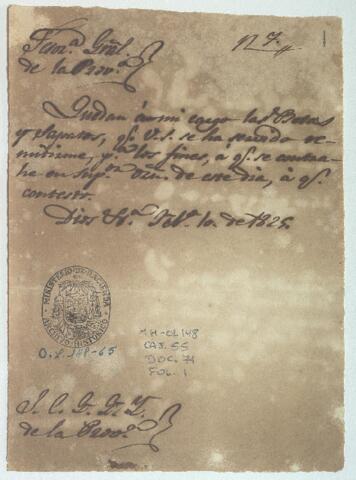 Nº 7.
Gral.
de la Prov.ª
Quedan á mi cargo las Botas
y Zapatos, q.e V.S. se ha servido re-
mitirme, p.a los fines, á q.e se contra-
he en su of.º de este dia, á q.e
contesto.
Dios Feb.º 10. de 1825.
MINISTERIO DE HACIENDA
ARCHIVO HISTORICO
O.L. 148-65
M.H-OL 148
CAJ. 55
DOC. 74
FOL. 1
de la Prov.ª